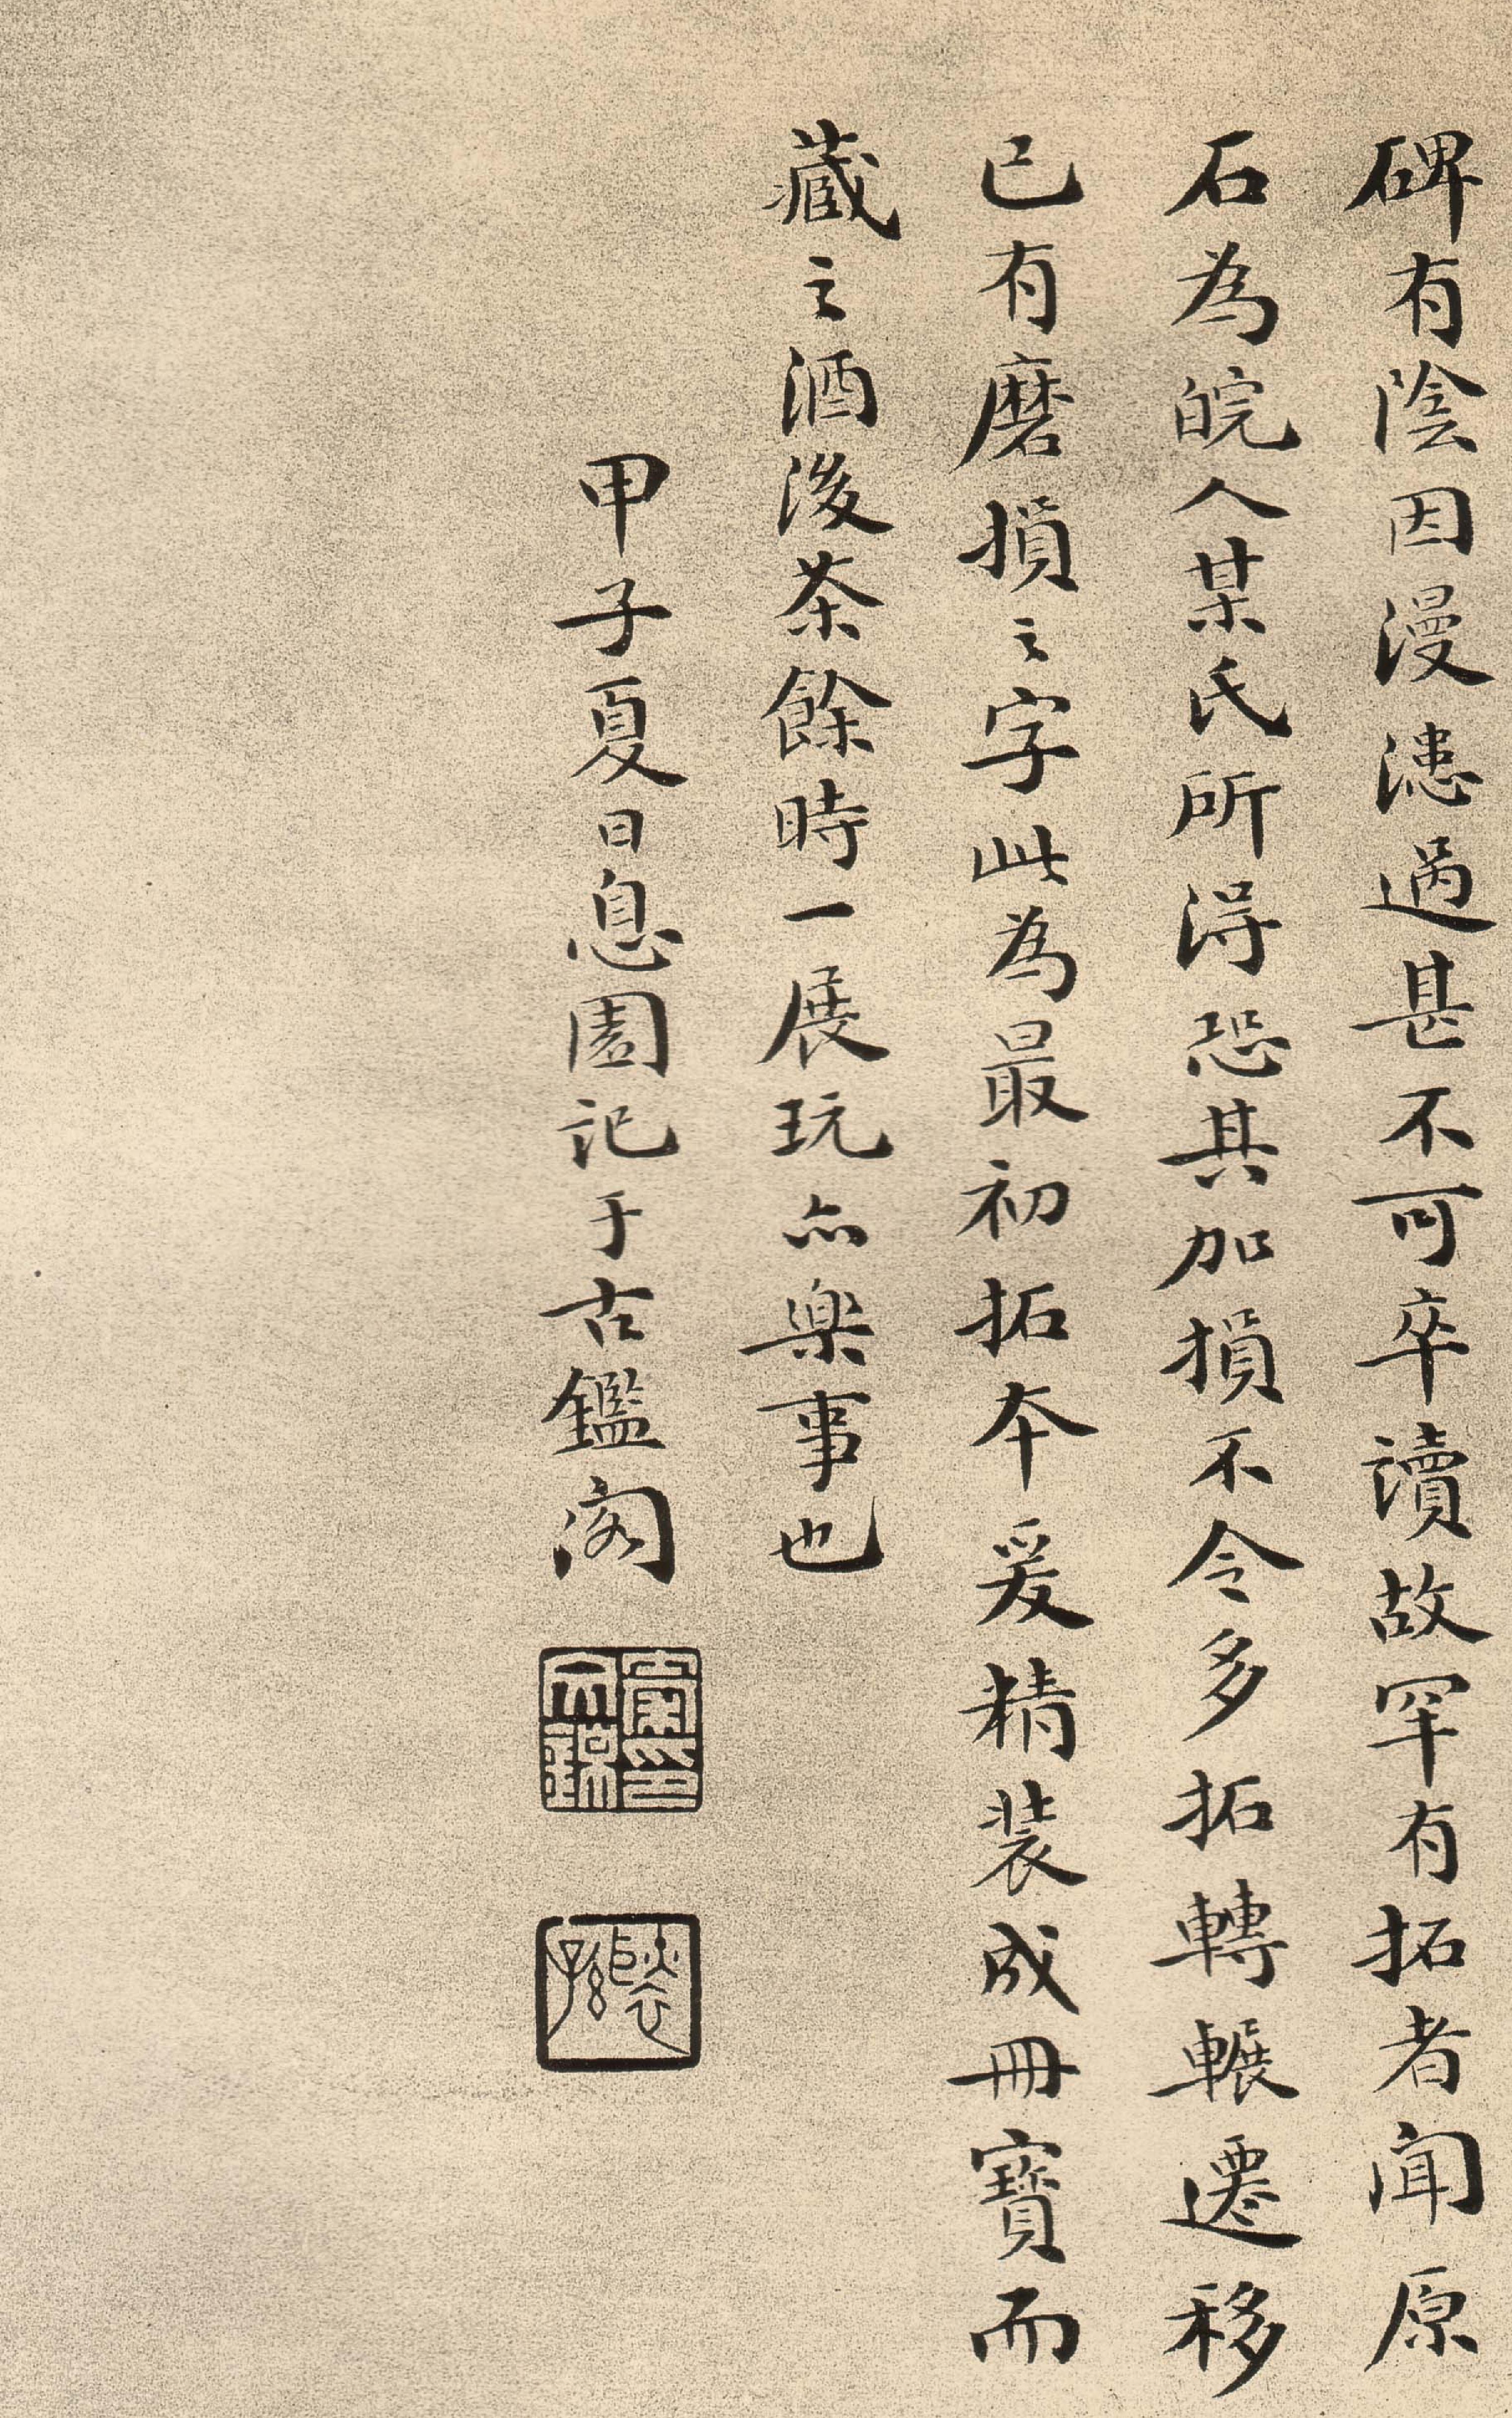 碑有陰因漫漶過甚不可卒讀故罕有拓者聞原
石為皖人某氏所得恐其加損不令多拓轉輾遷移
已有磨損之字此為最初拓本爰精裝成冊寶而
藏之酒後茶餘時一展玩亦樂事也
甲子夏日息園記于古鑑閣